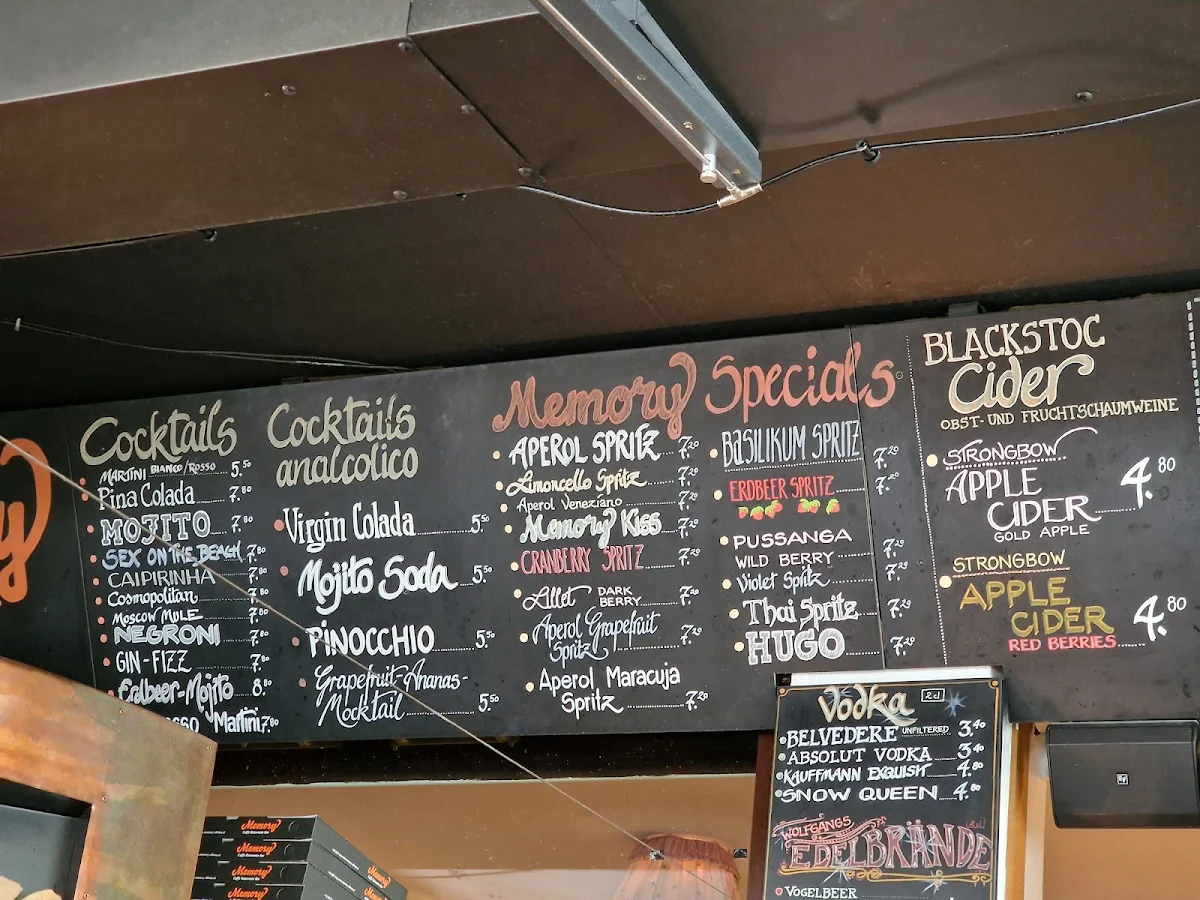 y
Cocktails
MARTINI BIANCO/ROSSO 5.50
Pina Colada 7.80
MOJITO 7.80
SEX ON THE BEACH 7.80
CAIPIRINHA 7.80
Cosmopolitan 7.80
MOSCOW MULE 7.80
NEGRONI 7.80
GIN-FIZZ 7.80
Erdbeer-Mojito 8.80
Martini 7.80
Cocktails
analcolico
Virgin Colada 5.50
Mojito Soda 5.50
PINOCCHIO 5.50
Grapefruit-Ananas-
Mocktail 5.50
Memory Specials
APEROL SPRITZ 7.20
Limoncello Spritz 7.20
Aperol Veneziano 7.20
Memory KISS 7.20
CRANBERRY SPRITZ 7.20
Lillet DARK BERRY 7.20
Aperol Grapefruit
Spritz 7.20
Aperol Maracuja
Spritz 7.20
BASILIKUM SPRITZ 7.20
ERDBEER SPRITZ 7.20
PUSSANGA 7.20
WILD BERRY
Violet Spritz 7.20
Thai Spritz 7.20
HUGO 7.20
BLACKSTOC
Cider
OBST- UND FRUCHTSCHAUMWEINE
STRONGBOW
APPLE
CIDER 4.80
GOLD APPLE
STRONGBOW
APPLE
CIDER 4.80
RED BERRIES
Vodka 2cl
BELVEDERE UNFILTERED 3.40
ABSOLUT VODKA 3.40
KAUFFMANN EXQUISIT 4.80
SNOW QUEEN 4.80
WOLFGANGS 2cl
EDELBRÄNDE
VOGELBEER
Memory
Memory
Memory
Memory
Memory
Memory